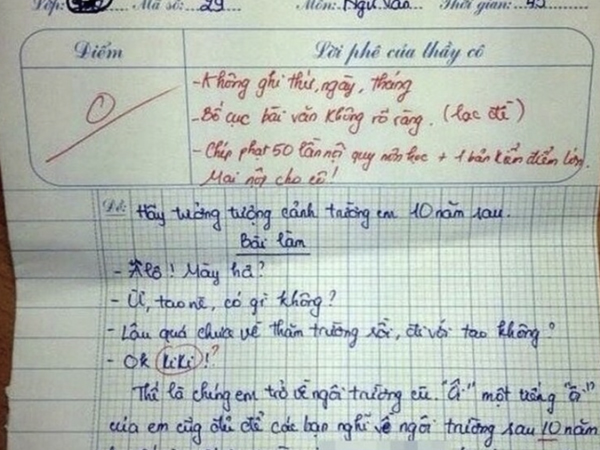 Lớp: Mã số: 29 Môn: Ngữ Văn Thời gian: 45
Điểm
Lời phê của thầy cô
0
- Không ghi thứ, ngày, tháng
- Bố cục bài văn không rõ ràng. (lạc đề)
- Chép phạt 50 lần nội quy môn học + 1 bản kiểm điểm lớn.
Mai nộp cho cô!
Đề: Hãy tưởng tượng cảnh trường em 10 năm sau.
Bài làm
- Alô! Mày hả?
- Ừ, tao nè, có gì không?
- Lâu quá chưa về thăm trường rồi, đi với tao không?
- Ok kiki!?
Thế là chúng em trở về ngôi trường cũ. "Ôi" một tiếng "ôi"
của em cũng đủ để các bạn nghĩ về ngôi trường sau 10 năm